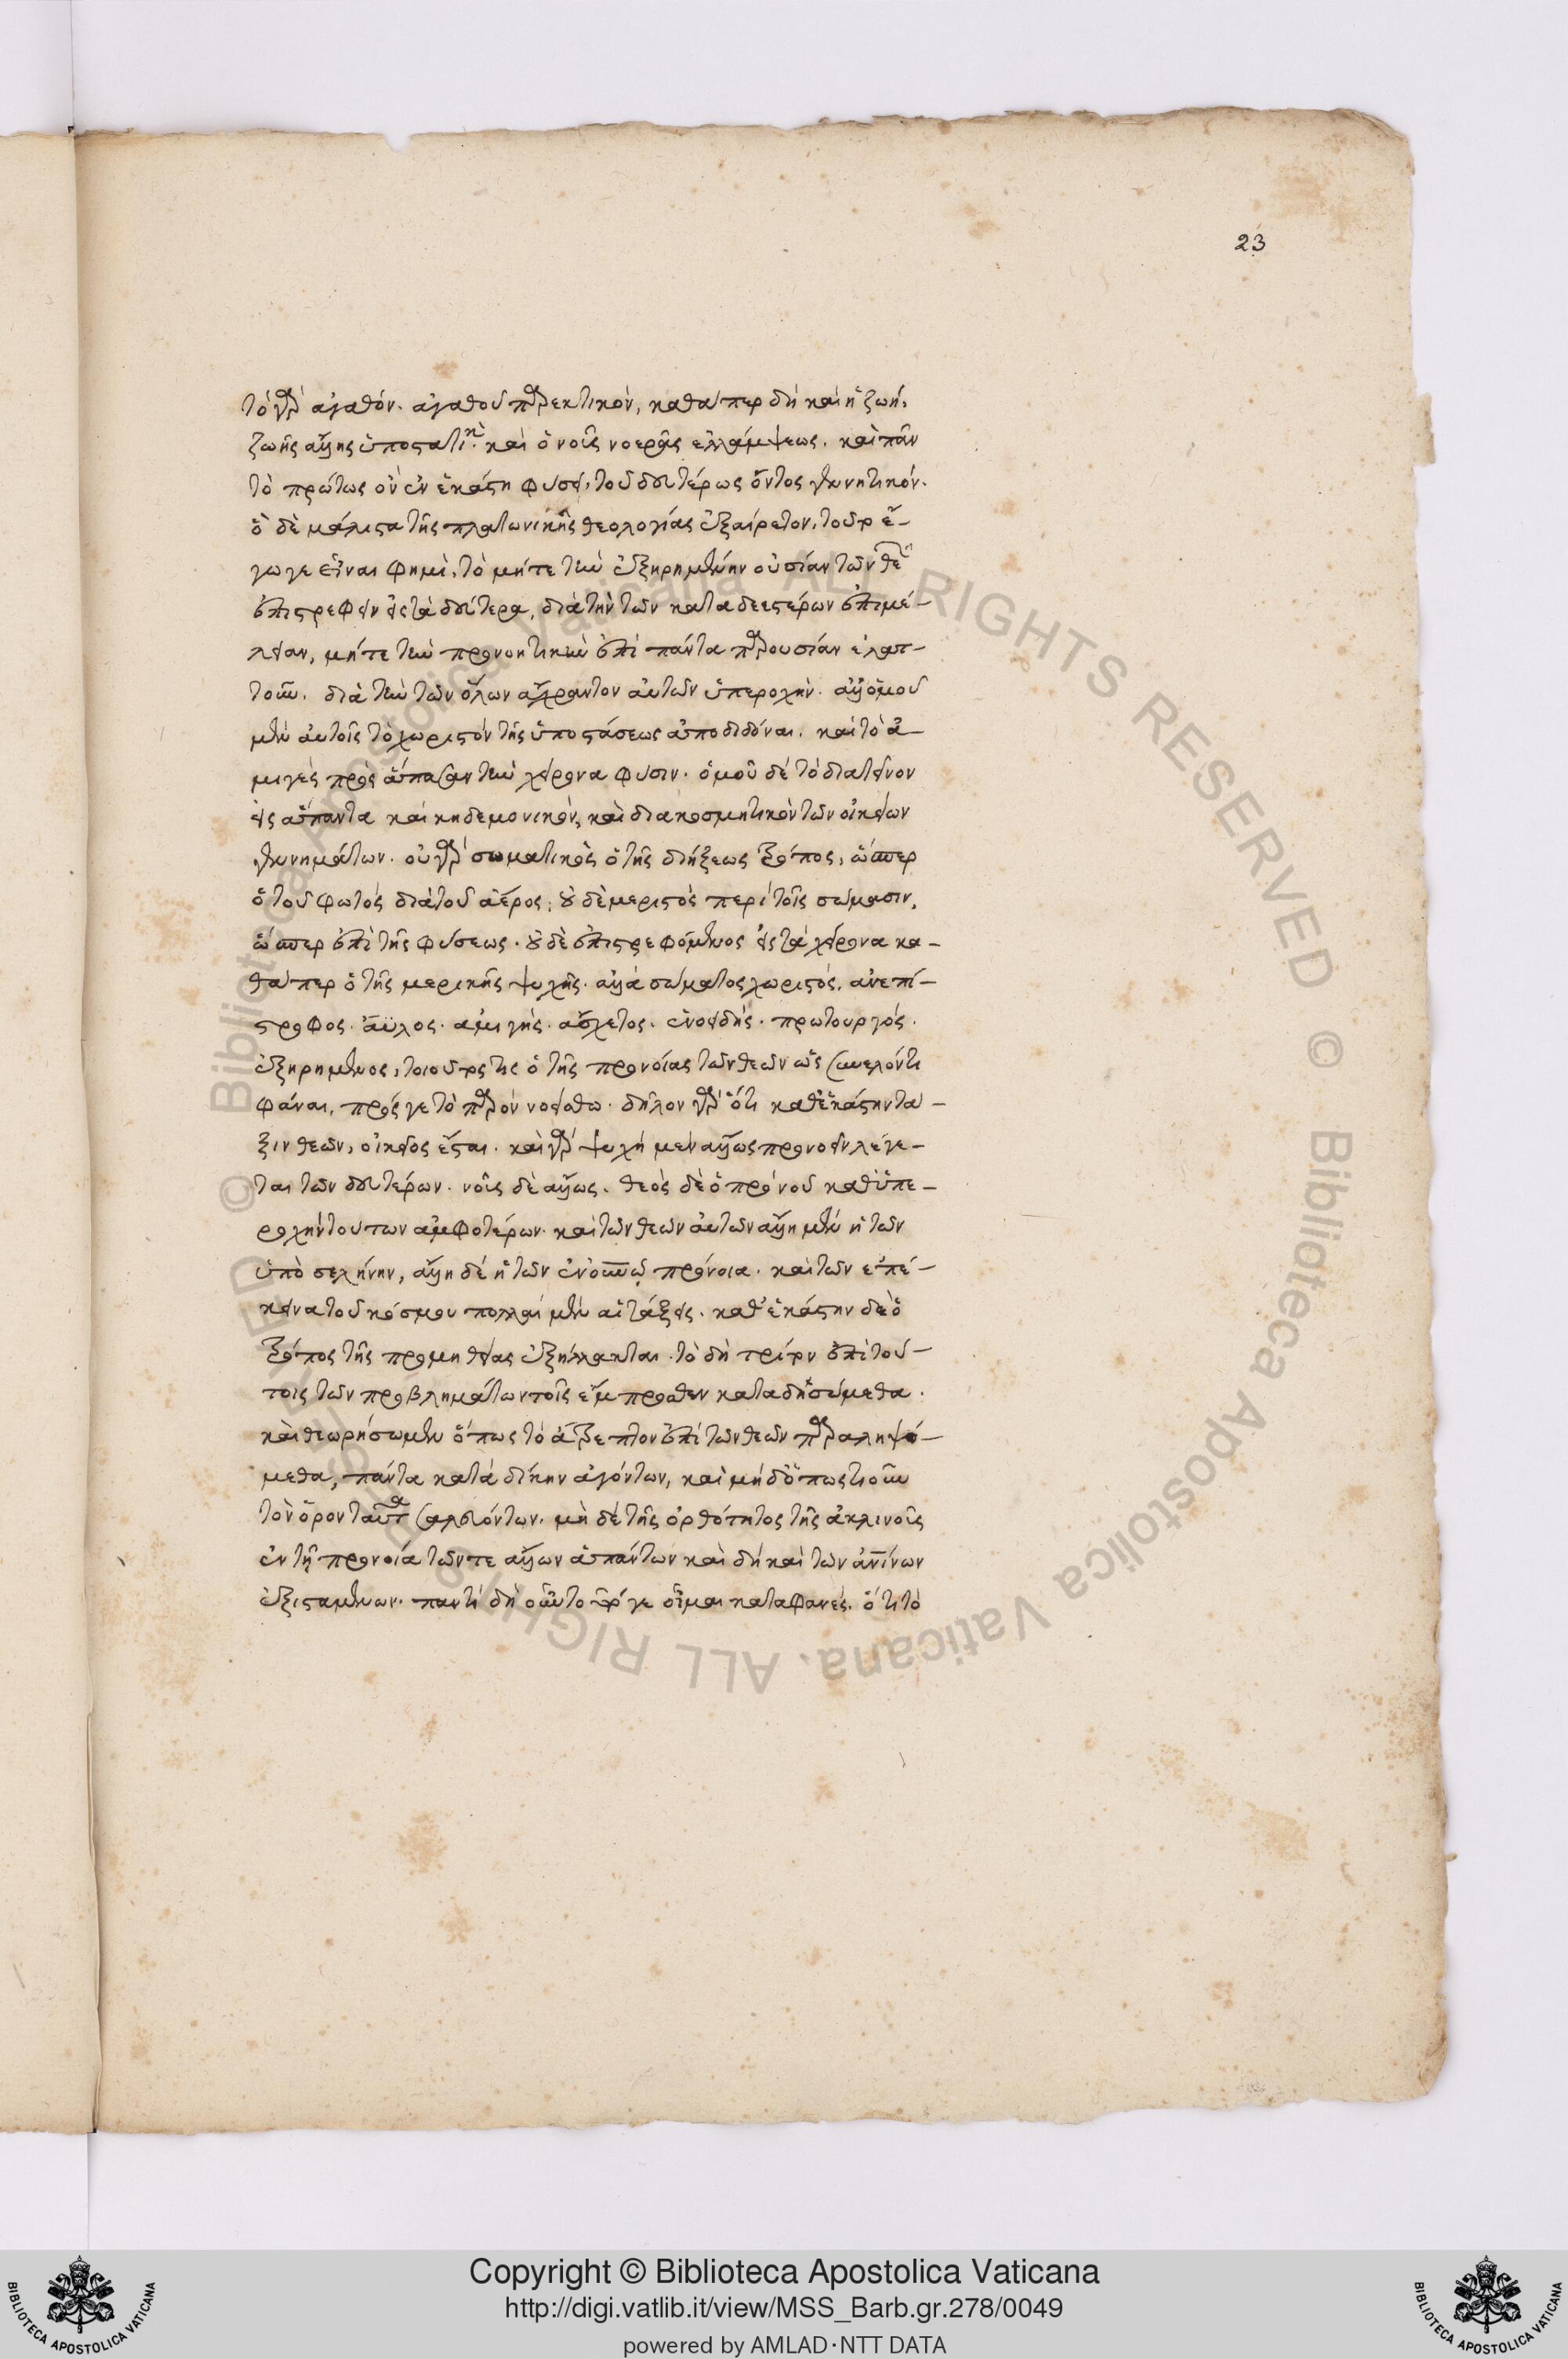 23
τὸ γὰρ ἀγαθόν. ἀγαθοῦ παρεκτικὸν, καθάπερ δὴ καὶ ἡ ζωή,
ζωῆς ἄλλης ὑποστατικὴ. καὶ ὁ νοῦς νοερᾶς ἐλλάμψεως. καὶ πᾶν
τὸ πρώτως ὂν ἐν ἑκάστη φύσει, τοῦ δευτέρως ὄντος γεννητικόν.
ὃ δὲ μάλιστα τῆς πλατωνικῆς θεολογίας ἐξαίρετον, τοῦτο ἔ-
γωγε εἶναι φημὶ, τὸ μήτε τὴν ἐξηρημένην οὐσίαν τῶν θεῶν
ἐπιστρέφειν εἰς τὰ δεύτερα, διὰ τὴν τῶν καταδεεστέρων ἐπιμέ-
λειαν, μήτε τὴν προνοητικὴν ἐπὶ πάντα παρουσίαν ἐλατ-
τοῦν. διὰ τὴν τῶν ὅλων ἄχραντον αὐτῶν ὑπεροχὴν. ἀλλ' ὁμοῦ
μὲν αὐτοῖς τὸ χωριστὸν τῆς ὑποστάσεως ἀποδιδόναι. καὶ τὸ ἀ-
μιγὲς πρὸς ἅπασαν τὴν χείρονα φύσιν. ὁμοῦ δὲ τὸ διατεῖνον
εἰς ἅπαντα καὶ κηδεμονικὸν, καὶ διακοσμητικὸν τῶν οἰκείων
γεννημάτων. οὐ γὰρ σωματικὸς ὁ τῆς διήξεως τρόπος, ὥσπερ
ὁ τοῦ φωτὸς διὰ τοῦ ἀέρος, οὐδὲ μεριστὸς περὶ τοῖς σώμασιν,
ὥσπερ ἐπὶ τῆς φύσεως. οὐδὲ ἐπιστρεφόμενος εἰς τὰ χείρονα κα-
θάπερ ὁ τῆς μερικῆς ψυχῆς. ἀλλὰ σώματος χωριστὸς, ἀνεπί-
στροφος. ἄϋλος. ἀμιγὴς. ἄσχετος. ἑνοειδὴς. πρωτουργός.
ἐξηρημένος, τοιοῦτος τις ὁ τῆς προνοίας τῶν θεῶν ὡς συνελόντι
φάναι, πρός γε τὸ παρὸν νοείσθω. δῆλον γὰρ ὅτι καθ' ἑκάστην τά-
ξιν θεῶν, οἰκεῖος ἔσται. καὶ γὰρ ψυχὴ μὲν ἄλλως προνοεῖν λέγε-
ται τῶν δευτέρων. νοῦς δὲ ἄλλως. θεὸς δὲ ὁ πρὸ νοῦ καθ' ὑπε-
ροχὴν τούτων ἀμφοτέρων. καὶ τῶν θεῶν αὐτῶν ἄλλη μὲν ἡ τῶν
ὑπὸ σελήνην, ἄλλη δὲ ἡ τῶν ἐν οὐρανῷ πρόνοια. καὶ τῶν ἐπέ-
κεινα τοῦ κόσμου πολλαὶ μὲν αἱ τάξεις. καθ' ἑκάστην δὲ ὁ
τρόπος τῆς προμηθείας ἐξήλλακται. τὸ δὴ τρίτον ἐπὶ τού-
τοις τῶν προβλημάτων τοῖς ἔμπροσθεν καταδησώμεθα.
καὶ θεωρήσωμεν ὅπως τὸ ἄτρεπτον ἐπὶ τῶν θεῶν παραληψό-
μεθα, πάντα κατὰ δίκην ἀγόντων, καὶ μηδ' ὅπως τιοῦν
τὸν ὅρον ταύτης σαλευόντων. μὴ δὲ τῆς ὀρθότητος τῆς ἀκλινοῦς
ἐν τῇ προνοίᾳ τῶν τε ἄλλων ἁπάντων καὶ δὴ καὶ τῶν ἀνθρωπίνων
ἐξισταμένων. παντὶ δὴ οὖν τοῦτό γε οἶμαι καταφανὲς. ὅτι τὸ
Copyright © Biblioteca Apostolica Vaticana
http://digi.vatlib.it/view/MSS_Barb.gr.278/0049
powered by AMLAD·NTT DATA